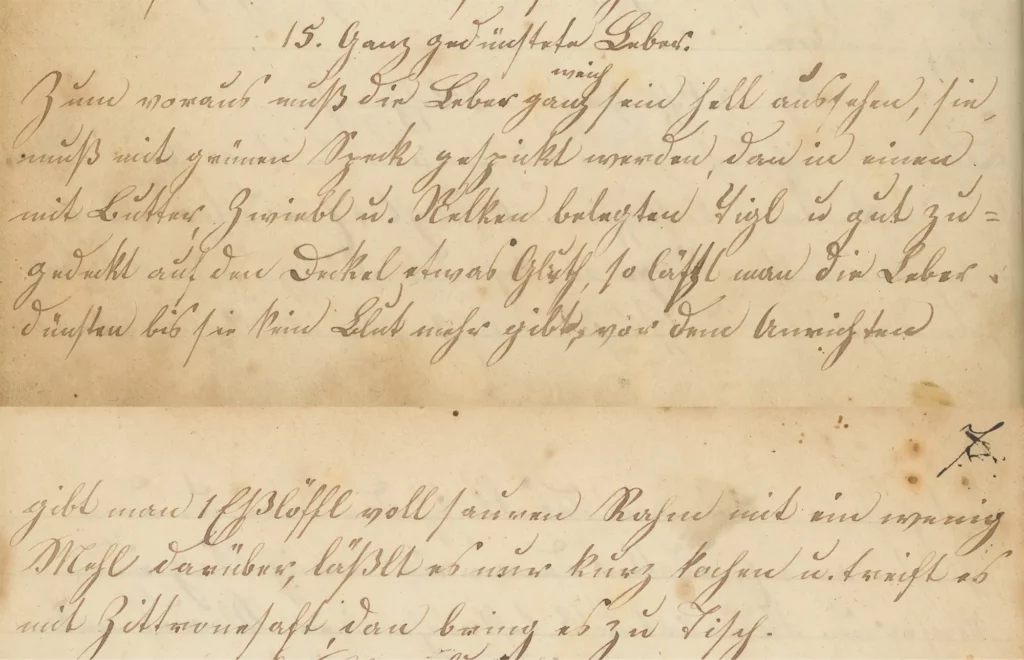 15. Ganz gedünstete Leber.
Zum voraus muß die Leber ganz weich sein hell aussehen, sie
muß mit grünen Speck gespickt werden, dan in einen
mit Butter, Zwiebl u. Nelken belegten Tigl u gut zu=
gedeckt auf den Deckel etwas Gluth, so läßt man die Leber
dünsten bis sie kein Blut mehr gibt, vor dem Anrichten
gibt man 1 Eßlöffl voll sauren Rahm mit ein wenig
Mehl darüber, läßt es nur kurz kochen u. treift es
mit Zittronesaft, dan bring es zu Tisch.